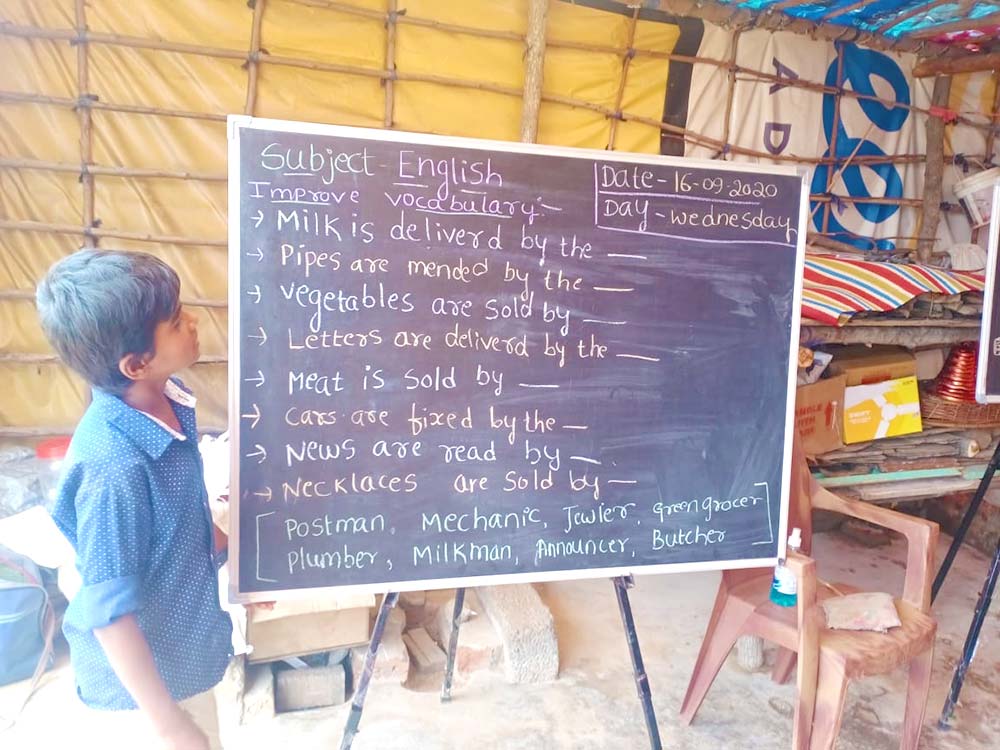 Subject - English
Date - 16-09-2020
Day - Wednesday
Improve vocabulary:-
→ Milk is deliverd by the __
→ Pipes are mended by the __
→ Vegetables are sold by __
→ Letters are deliverd by the __
→ Meat is sold by __
→ Cars are fixed by the _
→ News are read by __
→ Necklaces are sold by _
[Postman, Mechanic, Jewler, Greengrocer
Plumber, Milkman, Announcer, Butcher]